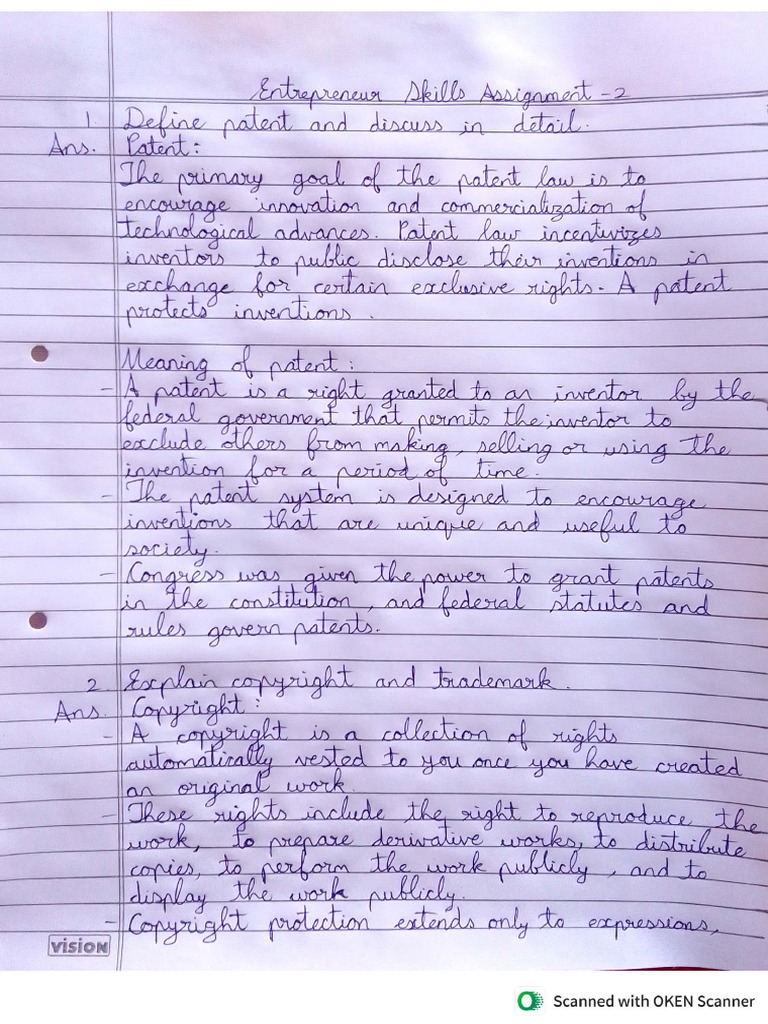 Entrepreneur Skills Assignment -2
1. Define patent and discuss in detail.
Ans. Patent:
The primary goal of the patent law is to
encourage innovation and commercialization of
technological advances. Patent law incentivizes
inventors to public disclose their inventions in
exchange for certain exclusive rights. A patent
protects inventions.
Meaning of patent:
- A patent is a right granted to an inventor by the
federal government that permits the inventor to
exclude others from making, selling or using the
invention for a period of time.
- The patent system is designed to encourage
inventions that are unique and useful to
society.
- Congress was given the power to grant patents
in the constitution, and federal statutes and
rules govern patents.
2. Explain copyright and trademark.
Ans. Copyright:
- A copyright is a collection of rights
automatically vested to you once you have created
an original work.
- These rights include the right to reproduce the
work, to prepare derivative works, to distribute
copies, to perform the work publicly, and to
display the work publicly.
- Copyright protection extends only to expressions,
VISION
Scanned with OKEN Scanner